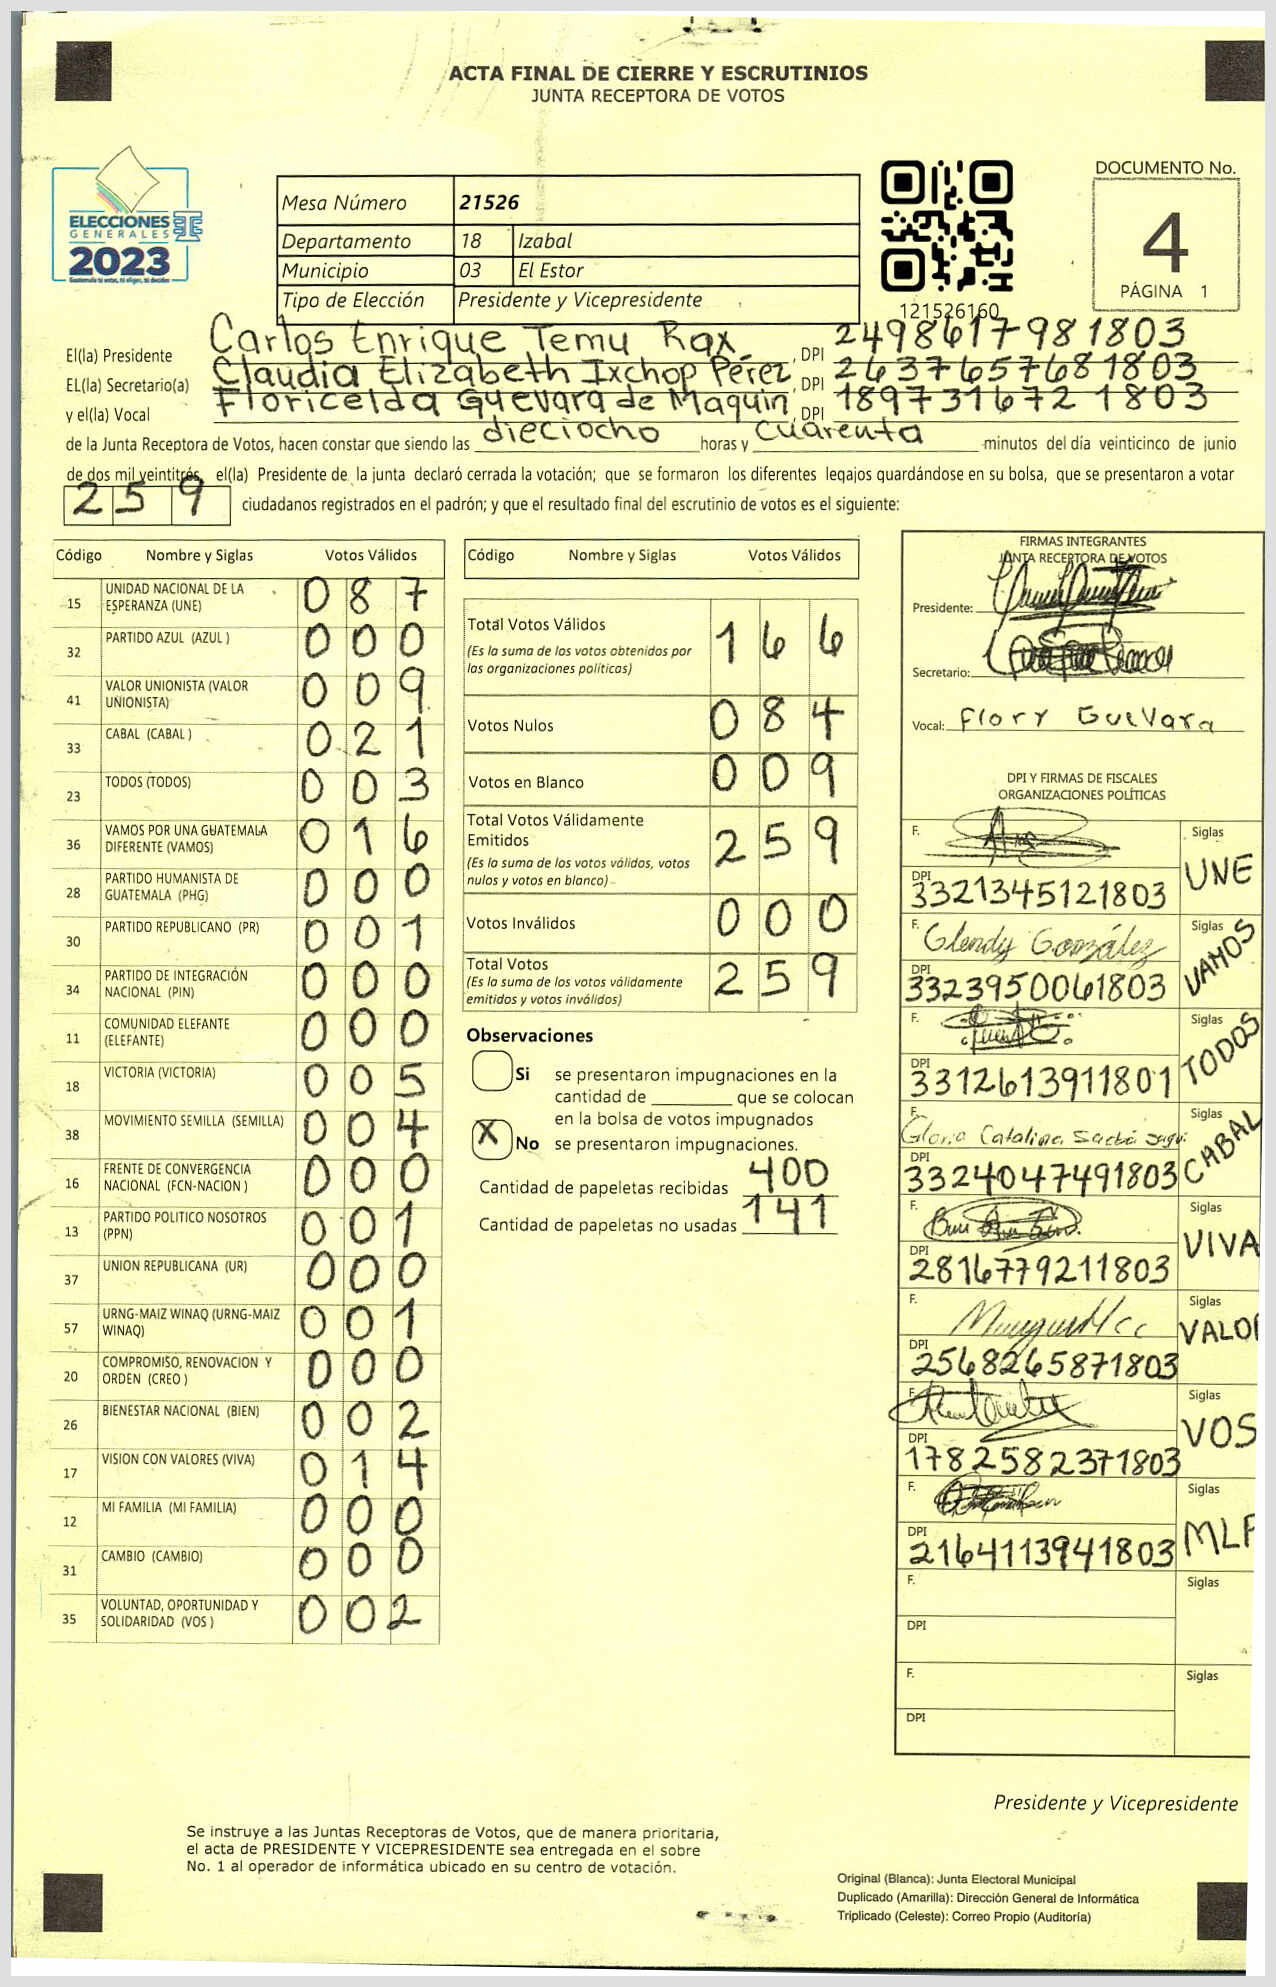 ACTA FINAL DE CIERRE Y ESCRUTINIOS
JUNTA RECEPTORA DE VOTOS
ELECCIONES
GENERALES
2023
Mesa Número 21526
Departamento 18 Izabal
Municipio 03 El Estor
Tipo de Elección Presidente y Vicepresidente
121526160
DOCUMENTO No.
4
PÁGINA 1
El(la) Presidente Carlos Enrique Temu Rax, DPI 2498617981803
EL(la) Secretario(a) Claudia Elizabeth Ixchop Pérez, DPI 2637657681803
y el(la) Vocal Floricelda Guevara de Maquin, DPI 1897316721803
de la Junta Receptora de Votos, hacen constar que siendo las dieciocho horas y cuarenta minutos del día veinticinco de junio
de dos mil veintitrés, el(la) Presidente de la junta declaró cerrada la votación; que se formaron los diferentes legajos guardándose en su bolsa, que se presentaron a votar
259 ciudadanos registrados en el padrón; y que el resultado final del escrutinio de votos es el siguiente:
Código Nombre y Siglas Votos Válidos
15 UNIDAD NACIONAL DE LA ESPERANZA (UNE) 087
32 PARTIDO AZUL (AZUL ) 000
41 VALOR UNIONISTA (VALOR UNIONISTA) 009
33 CABAL (CABAL ) 021
23 TODOS (TODOS) 003
36 VAMOS POR UNA GUATEMALA DIFERENTE (VAMOS) 016
28 PARTIDO HUMANISTA DE GUATEMALA (PHG) 000
30 PARTIDO REPUBLICANO (PR) 001
34 PARTIDO DE INTEGRACIÓN NACIONAL (PIN) 000
11 COMUNIDAD ELEFANTE (ELEFANTE) 000
18 VICTORIA (VICTORIA) 005
38 MOVIMIENTO SEMILLA (SEMILLA) 004
16 FRENTE DE CONVERGENCIA NACIONAL (FCN-NACION ) 000
13 PARTIDO POLITICO NOSOTROS (PPN) 001
37 UNION REPUBLICANA (UR) 000
57 URNG-MAIZ WINAQ (URNG-MAIZ WINAQ) 001
20 COMPROMISO, RENOVACION Y ORDEN (CREO ) 000
26 BIENESTAR NACIONAL (BIEN) 002
17 VISION CON VALORES (VIVA) 014
12 MI FAMILIA (MI FAMILIA) 000
31 CAMBIO (CAMBIO) 000
35 VOLUNTAD, OPORTUNIDAD Y SOLIDARIDAD (VOS ) 002
Código Nombre y Siglas Votos Válidos
Total Votos Válidos 166
(Es la suma de los votos obtenidos por
las organizaciones políticas)
Votos Nulos 084
Votos en Blanco 009
Total Votos Válidamente
Emitidos 259
(Es la suma de los votos válidos, votos
nulos y votos en blanco)
Votos Inválidos 000
Total Votos 259
(Es la suma de los votos válidamente
emitidos y votos inválidos)
Observaciones
Si se presentaron impugnaciones en la
cantidad de ________ que se colocan
en la bolsa de votos impugnados
X No se presentaron impugnaciones.
Cantidad de papeletas recibidas 400
Cantidad de papeletas no usadas 141
FIRMAS INTEGRANTES
JUNTA RECEPTORA DE VOTOS
Presidente:
Secretario:
Vocal: Flory Guevara
DPI Y FIRMAS DE FISCALES
ORGANIZACIONES POLÍTICAS
F. Siglas UNE
DPI 3321345121803
F. Glendy González Siglas VAMOS
DPI 3323950061803
F. Siglas TODOS
DPI 3312613911801
F. Gloria Catalina Siglas CABAL
DPI 3324047491803
F. Siglas VIVA
DPI 2816779211803
F. Siglas VALOR
DPI 2568265871803
F. Siglas VOS
DPI 1782582371803
F. Siglas MLP
DPI 2164113941803
F. Siglas
DPI
F. Siglas
DPI
Presidente y Vicepresidente
Se instruye a las Juntas Receptoras de Votos, que de manera prioritaria,
el acta de PRESIDENTE Y VICEPRESIDENTE sea entregada en el sobre
No. 1 al operador de informática ubicado en su centro de votación.
Original (Blanca): Junta Electoral Municipal
Duplicado (Amarilla): Dirección General de Informática
Triplicado (Celeste): Correo Propio (Auditoría)